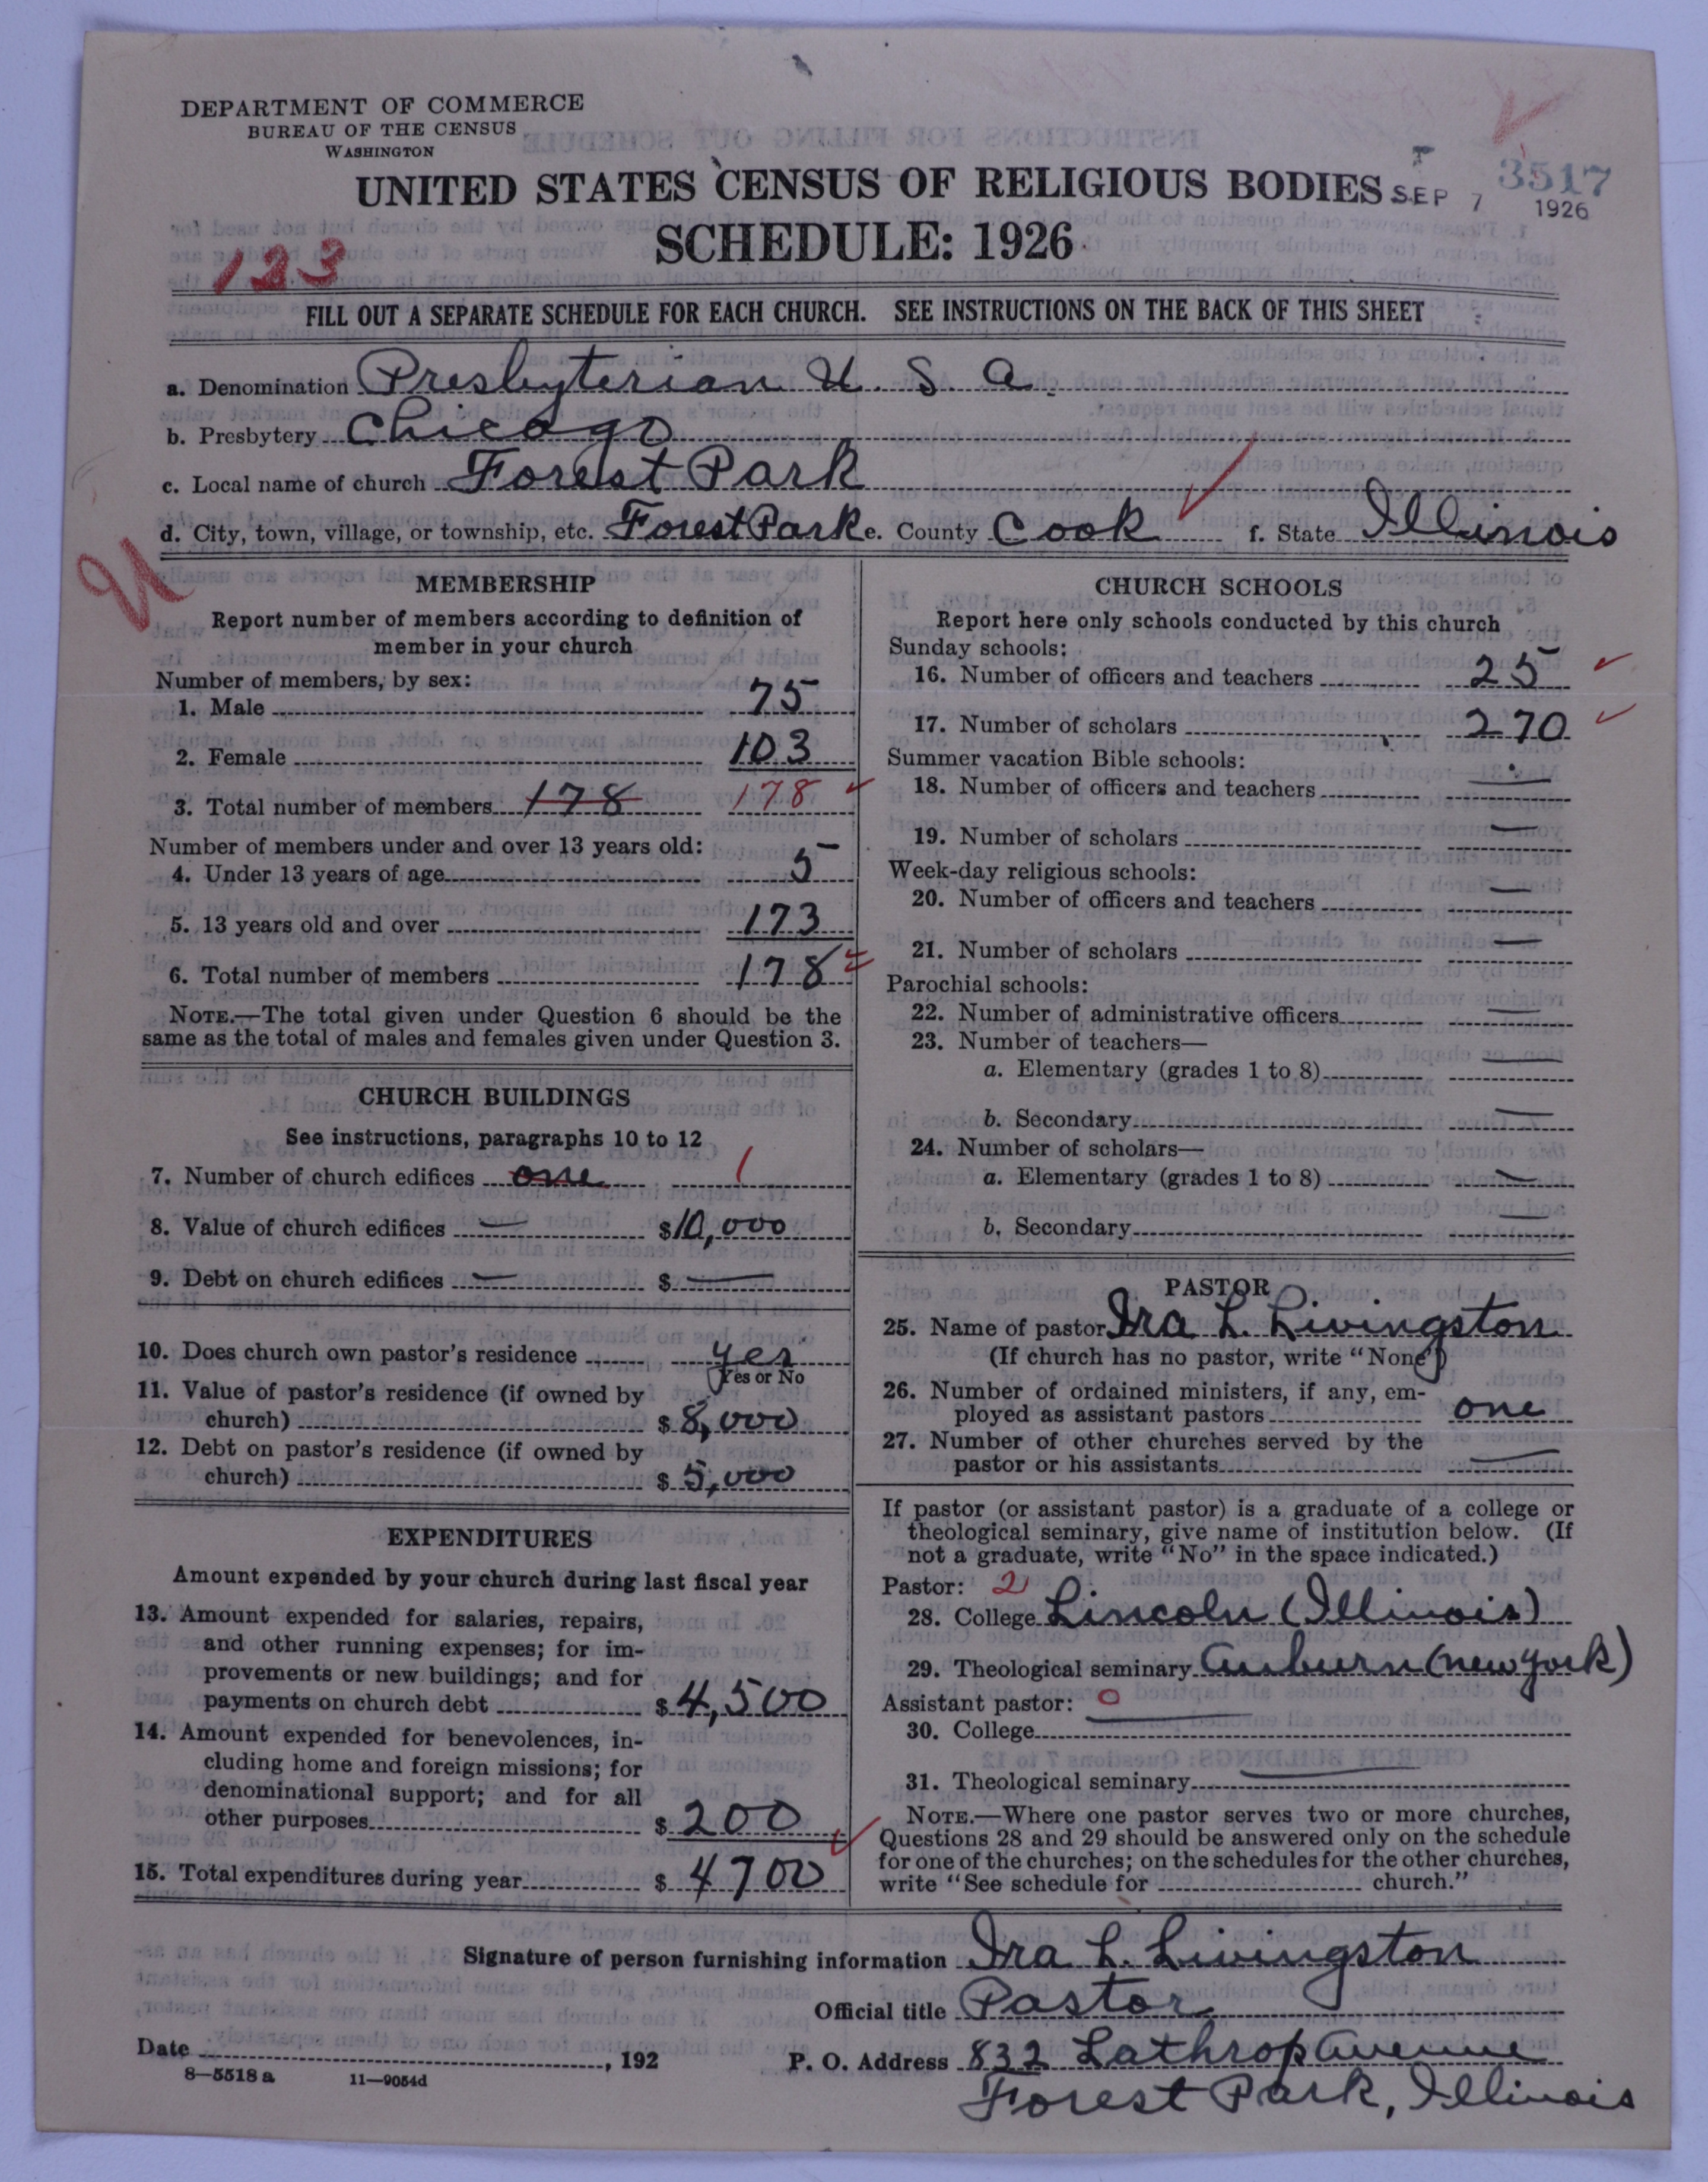 DEPARTMENT OF COMMERCE
BUREAU OF THE CENSUS
WASHINGTON
UNITED STATES CENSUS OF RELIGIOUS BODIES
SEP 7 1926
3517
SCHEDULE: 1926
123
FILL OUT A SEPARATE SCHEDULE FOR EACH CHURCH. SEE INSTRUCTIONS ON THE BACK OF THIS SHEET
a. Denomination Presbyterian U. S. A.
b. Presbytery Chicago
c. Local name of church Forest Park
d. City, town, village, or township, etc. Forest Park e. County Cook f. State Illinois
U
MEMBERSHIP
Report number of members according to definition of
member in your church
Number of members, by sex:
1. Male 75
2. Female 103
3. Total number of members 178 178
Number of members under and over 13 years old:
4. Under 13 years of age 5
5. 13 years old and over 173
6. Total number of members 178
NOTE.—The total given under Question 6 should be the
same as the total of males and females given under Question 3.
CHURCH BUILDINGS
See instructions, paragraphs 10 to 12
7. Number of church edifices one 1
8. Value of church edifices — $10,000
9. Debt on church edifices — $ —
10. Does church own pastor's residence yes
Yes or No
11. Value of pastor's residence (if owned by
church) $ 8,000
12. Debt on pastor's residence (if owned by
church) $ 5,000
EXPENDITURES
Amount expended by your church during last fiscal year
13. Amount expended for salaries, repairs,
and other running expenses; for im-
provements or new buildings; and for
payments on church debt $ 4,500
14. Amount expended for benevolences, in-
cluding home and foreign missions; for
denominational support; and for all
other purposes $ 200
15. Total expenditures during year $ 4700
CHURCH SCHOOLS
Report here only schools conducted by this church
Sunday schools:
16. Number of officers and teachers 25
17. Number of scholars 270
Summer vacation Bible schools:
18. Number of officers and teachers —
19. Number of scholars —
Week-day religious schools:
20. Number of officers and teachers —
21. Number of scholars —
Parochial schools:
22. Number of administrative officers —
23. Number of teachers—
a. Elementary (grades 1 to 8) —
b. Secondary —
24. Number of scholars—
a. Elementary (grades 1 to 8) —
b. Secondary —
PASTOR
25. Name of pastor Ira L. Livingston
(If church has no pastor, write "None")
26. Number of ordained ministers, if any, em-
ployed as assistant pastors one
27. Number of other churches served by the
pastor or his assistants —
If pastor (or assistant pastor) is a graduate of a college or
theological seminary, give name of institution below. (If
not a graduate, write "No" in the space indicated.)
Pastor: 2
28. College Lincoln (Illinois)
29. Theological seminary Auburn (New York)
Assistant pastor: 0
30. College —
31. Theological seminary —
NOTE.—Where one pastor serves two or more churches,
Questions 28 and 29 should be answered only on the schedule
for one of the churches; on the schedules for the other churches,
write "See schedule for church."
Signature of person furnishing information Ira L. Livingston
Official title Pastor
Date , 192 P. O. Address 832 Lathrop Avenue
Forest Park, Illinois
8—5518 a 11—9054d